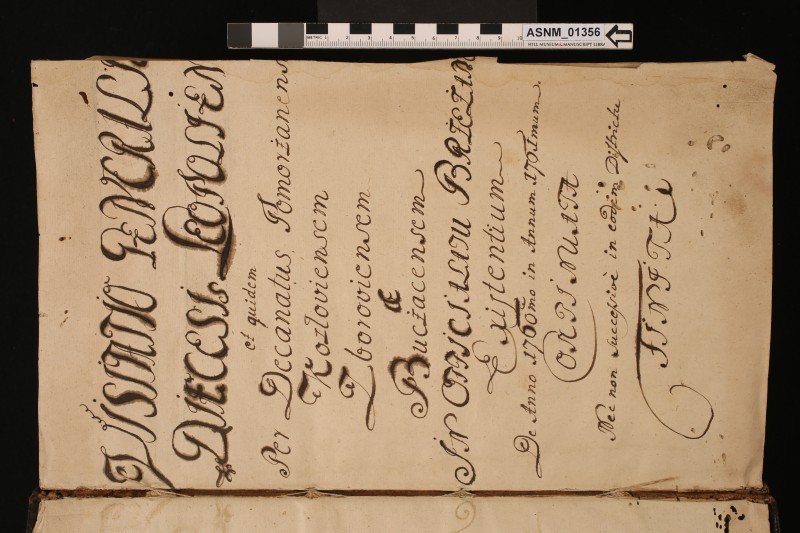 ASNM_01356
METRIC 1 2 3 4 5 6 7 8 9 10
HILL MUSEUM & MANUSCRIPT LIBRARY
VISITATIO GENERALI
DIÆCESIS LEOPOLIEN
et quidem
Per Decanatus Pomorżanens
Kozłoviensem
Zboroviensem
Æ
Buczacensem
IN OFFICIALITU BRZEZAN
Existentium
De Anno 1700mo in Annum
CONTINUATA
Nec non successivè in eodem Districtu
FINITA